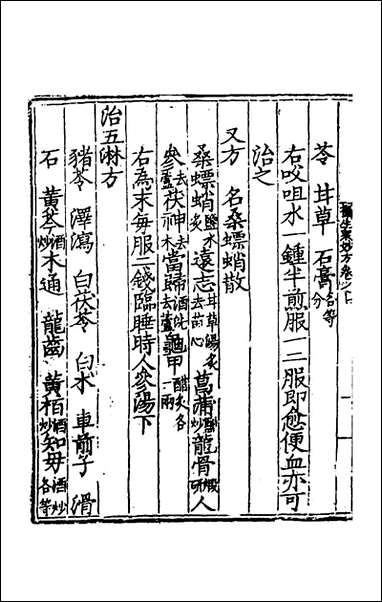 攝生眾妙方卷之七
苓 甘草 石膏各等分
右㕮咀水一鍾半煎服一二服即愈便血亦可
治之
又方 名桑螵蛸散
桑螵蛸鹽水炙遠志甘草湯炙去苗心菖蒲鹽炒龍骨煅研人
參去蘆茯神去木當歸酒洗去蘆龜甲醋炙各一兩
右為末每服二錢臨睡時人參湯下
治五淋方
豬苓 澤瀉 白茯苓 白朮 車前子 滑
石 黃芩酒炒木通 龍齒 黃栢酒炒知母酒炒各等